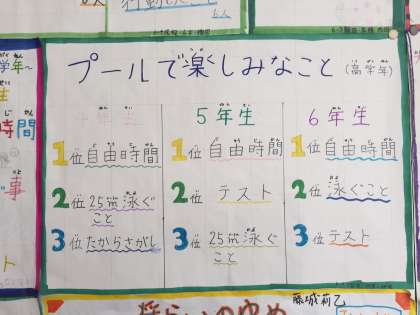 プールで楽しみなこと(高学年)
4年生
1位自由時間
2位25m泳ぐ
こと
3位たからさがし
5年生
1位自由時間
2位テスト
3位25m泳ぐ
こと
6年生
1位自由時間
2位泳ぐこと
3位テスト
学年~
生
時間
事
ト
行動したこと
6人
藤城莉乙